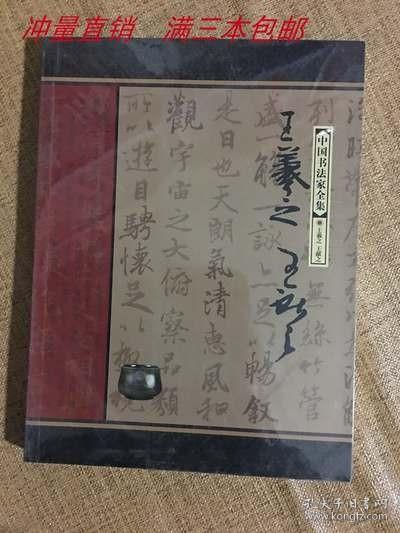 冲量直销 满三本包邮
中国书法家全集
王羲之 王献之
王羲之 王献之
列
無絲竹管
盛一觴一詠亦足以暢敘
是日也天朗氣清惠風和
觀宇宙之大俯察品類
所以遊目騁懷足以極視
孔夫子旧书网
www.kongfz.com